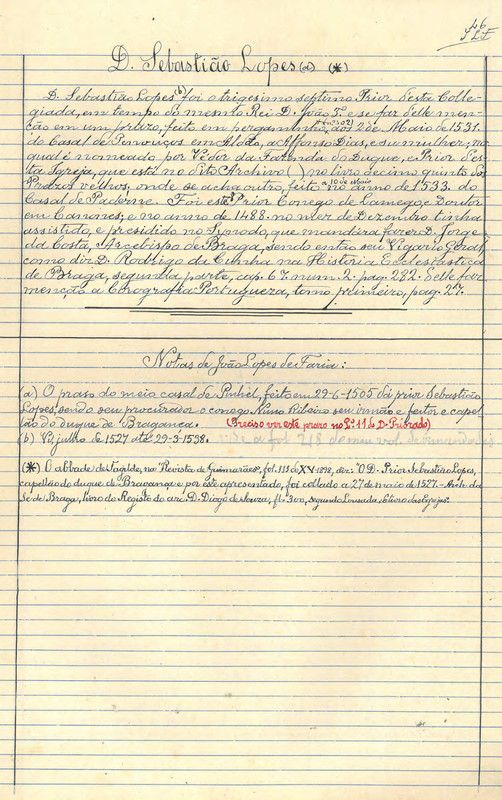 46
J L F
D. Sebastião Lopes (a) (*)
D. Sebastião Lopes (b) foi o trigesimo septimo Prior desta Colle-
giada, em tempo do mesmo Rei D. João 3º e se faz delle men-
ção em um prazo, feito em pergaminho, aos 2 de Maio de 1531.
do Casal de em, a Affonso Dias, e sua mulher, no
qual é nomeado por Vedor da Fazenda do Duque, e Prior des-
ta Igreja, que está no dito Archivo ( ) no livro decimo quinto dos
Prazos velhos, onde se acha outro, feito no anno de 1533. do
Casal de Paderne. Foi este Prior Conego de Lamego, e Doutor
em Canones; e no anno de 1488. no mez de Dezembro tinha
assistido, e presidido no Synodo, que mandára fazer D. Jorge
da Costa, Arcebispo de Braga, sendo então seu Vigario Geral,
como diz D. Rodrigo da Cunha na Historia Ecclesiastica
de Braga, segunda parte, cap. 67. num. 2. pag. 282. Delle faz
menção a Corografia Portugueza, tomo primeiro, pag. 27.
Notas de João Lopes de Faria:
(a) O praso do meio casal de Pinhel, feito em 29-6-1505 dá prior Sebastião
Lopes, sendo seu procurador o conego Nuno Ribeiro seu irmão e feitor e capel-
ão do duque de Bragança. (Preciso ver este prazo no Lº 11 do D. Priorado)
(b) Vi, junho de 1527 até 29-3-1538. vide a fol 218 do meu vol. de
(*) O abbade de Tagilde, na "Revista de Guimarães", fol. 111 do XV-1898, diz: "O D. Prior Sebastião Lopes,
capellão do duque de Bragança e por este apresentado, foi collado a 27 de maio de 1527. - Arch. da
Sé de Braga, livro do Registo do arc. D. Diogo de Souza, fl. 300, segundo Lousada no livro das Egrejas".